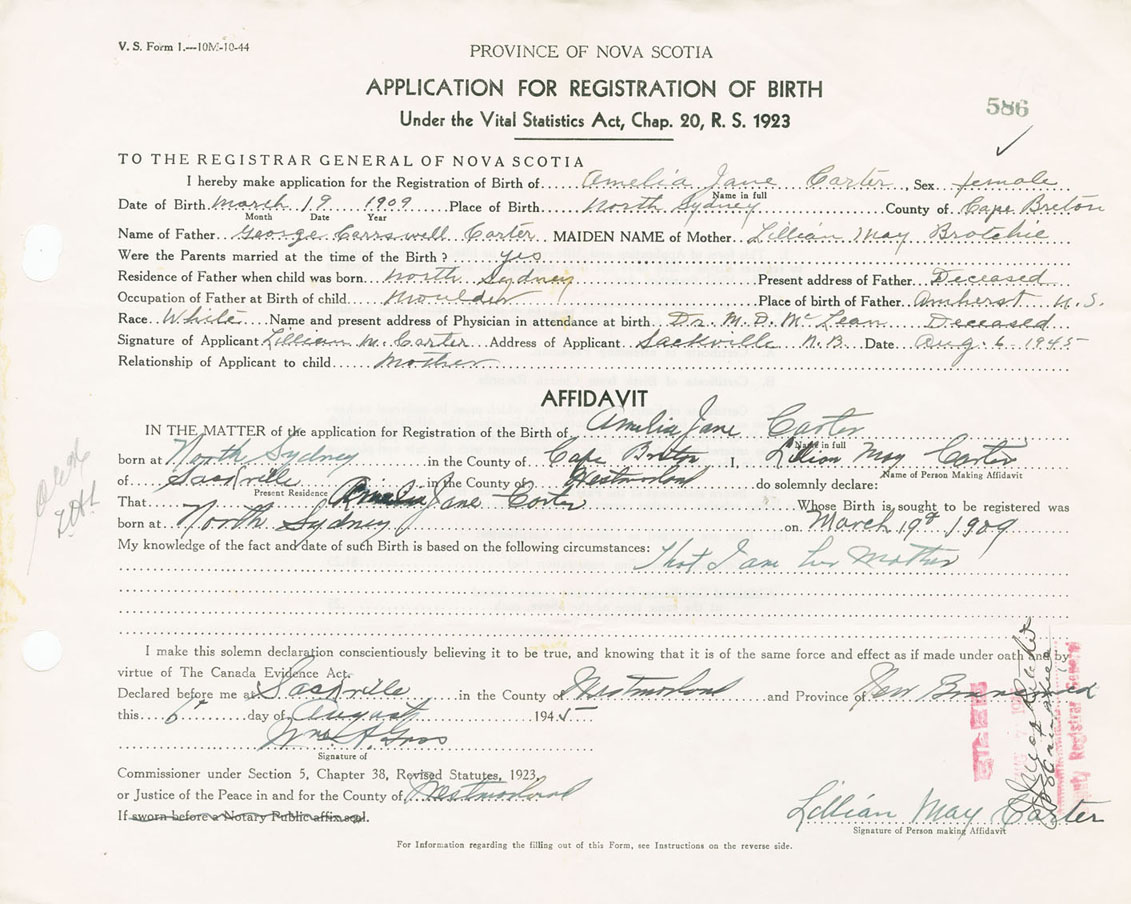 V. S. Form 1.—10M-10-44
PROVINCE OF NOVA SCOTIA
APPLICATION FOR REGISTRATION OF BIRTH
586
Under the Vital Statistics Act, Chap. 20, R. S. 1923
TO THE REGISTRAR GENERAL OF NOVA SCOTIA
I hereby make application for the Registration of Birth of Amelia Jane Carter, Sex female
Name in full
Date of Birth March 19 1909 Place of Birth North Sydney County of Cape Breton
Month Date Year
Name of Father George Carrswell Carter MAIDEN NAME of Mother Lillian May Brotchie
Were the Parents married at the time of the Birth? yes
Residence of Father when child was born North Sydney Present address of Father Deceased
Occupation of Father at Birth of child Moulder Place of birth of Father Amherst N.S.
Race White Name and present address of Physician in attendance at birth Dr. M. D. McLean Deceased
Signature of Applicant Lillian M. Carter Address of Applicant Sackville N.B. Date Aug. 6 1945
Relationship of Applicant to child Mother
AFFIDAVIT
IN THE MATTER of the application for Registration of the Birth of Amelia Jane Carter
Name in full
born at North Sydney in the County of Cape Breton I, Lillian May Carter
Name of Person Making Affidavit
of Sackville in the County of Westmorland do solemnly declare:
Present Residence
That Amelia Jane Carter Whose Birth is sought to be registered was
born at North Sydney on March 19th 1909
My knowledge of the fact and date of such Birth is based on the following circumstances: That I am her Mother
I make this solemn declaration conscientiously believing it to be true, and knowing that it is of the same force and effect as if made under oath and by
virtue of The Canada Evidence Act.
Declared before me at Sackville in the County of Westmorland and Province of New Brunswick
this 6th day of August 1945
Signature of
Commissioner under Section 5, Chapter 38, Revised Statutes, 1923,
or Justice of the Peace in and for the County of Westmorland
If sworn before a Notary Public affix seal.
Lillian May Carter
Signature of Person making Affidavit
For Information regarding the filling out of this Form, see Instructions on the reverse side.
Deputy Registrar General